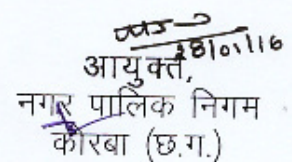 28/01/16
आयुक्त,
नगर पालिक निगम
कोरबा (छ.ग.)